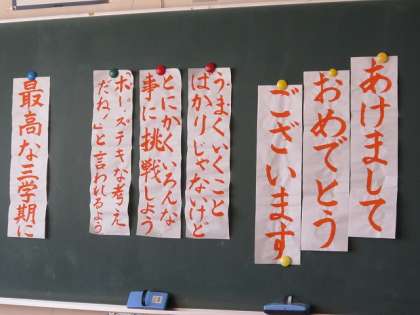 あけまして
おめでとう
ございます
うまくいくこと
ばかりじゃないけど
とにかくいろんな
事に挑戦しよう
「ホー。ステキな考え
だね!」と言われるよう
最高な三学期に